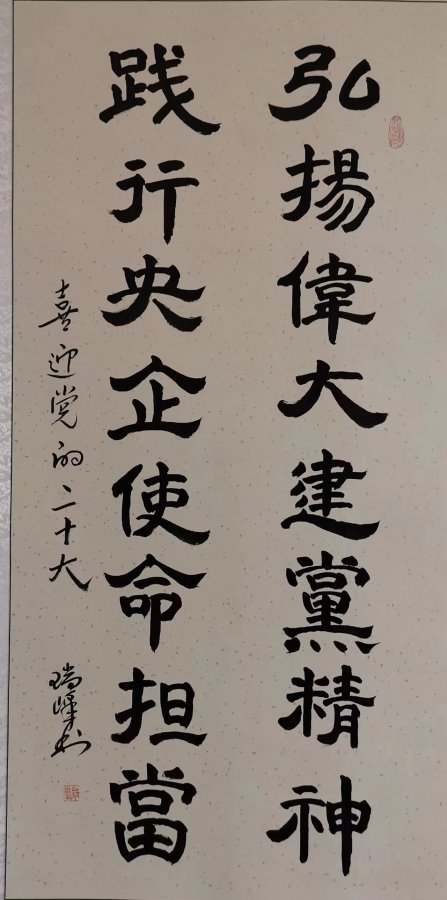 弘揚偉大建黨精神
践行央企使命担當
喜迎党的二十大
瑞峰书